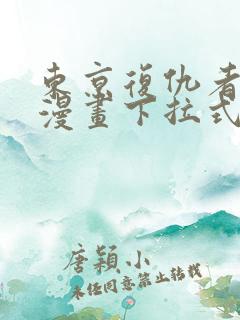 东京復仇者
漫畫下拉式
唐穎小
未经同意禁止转载